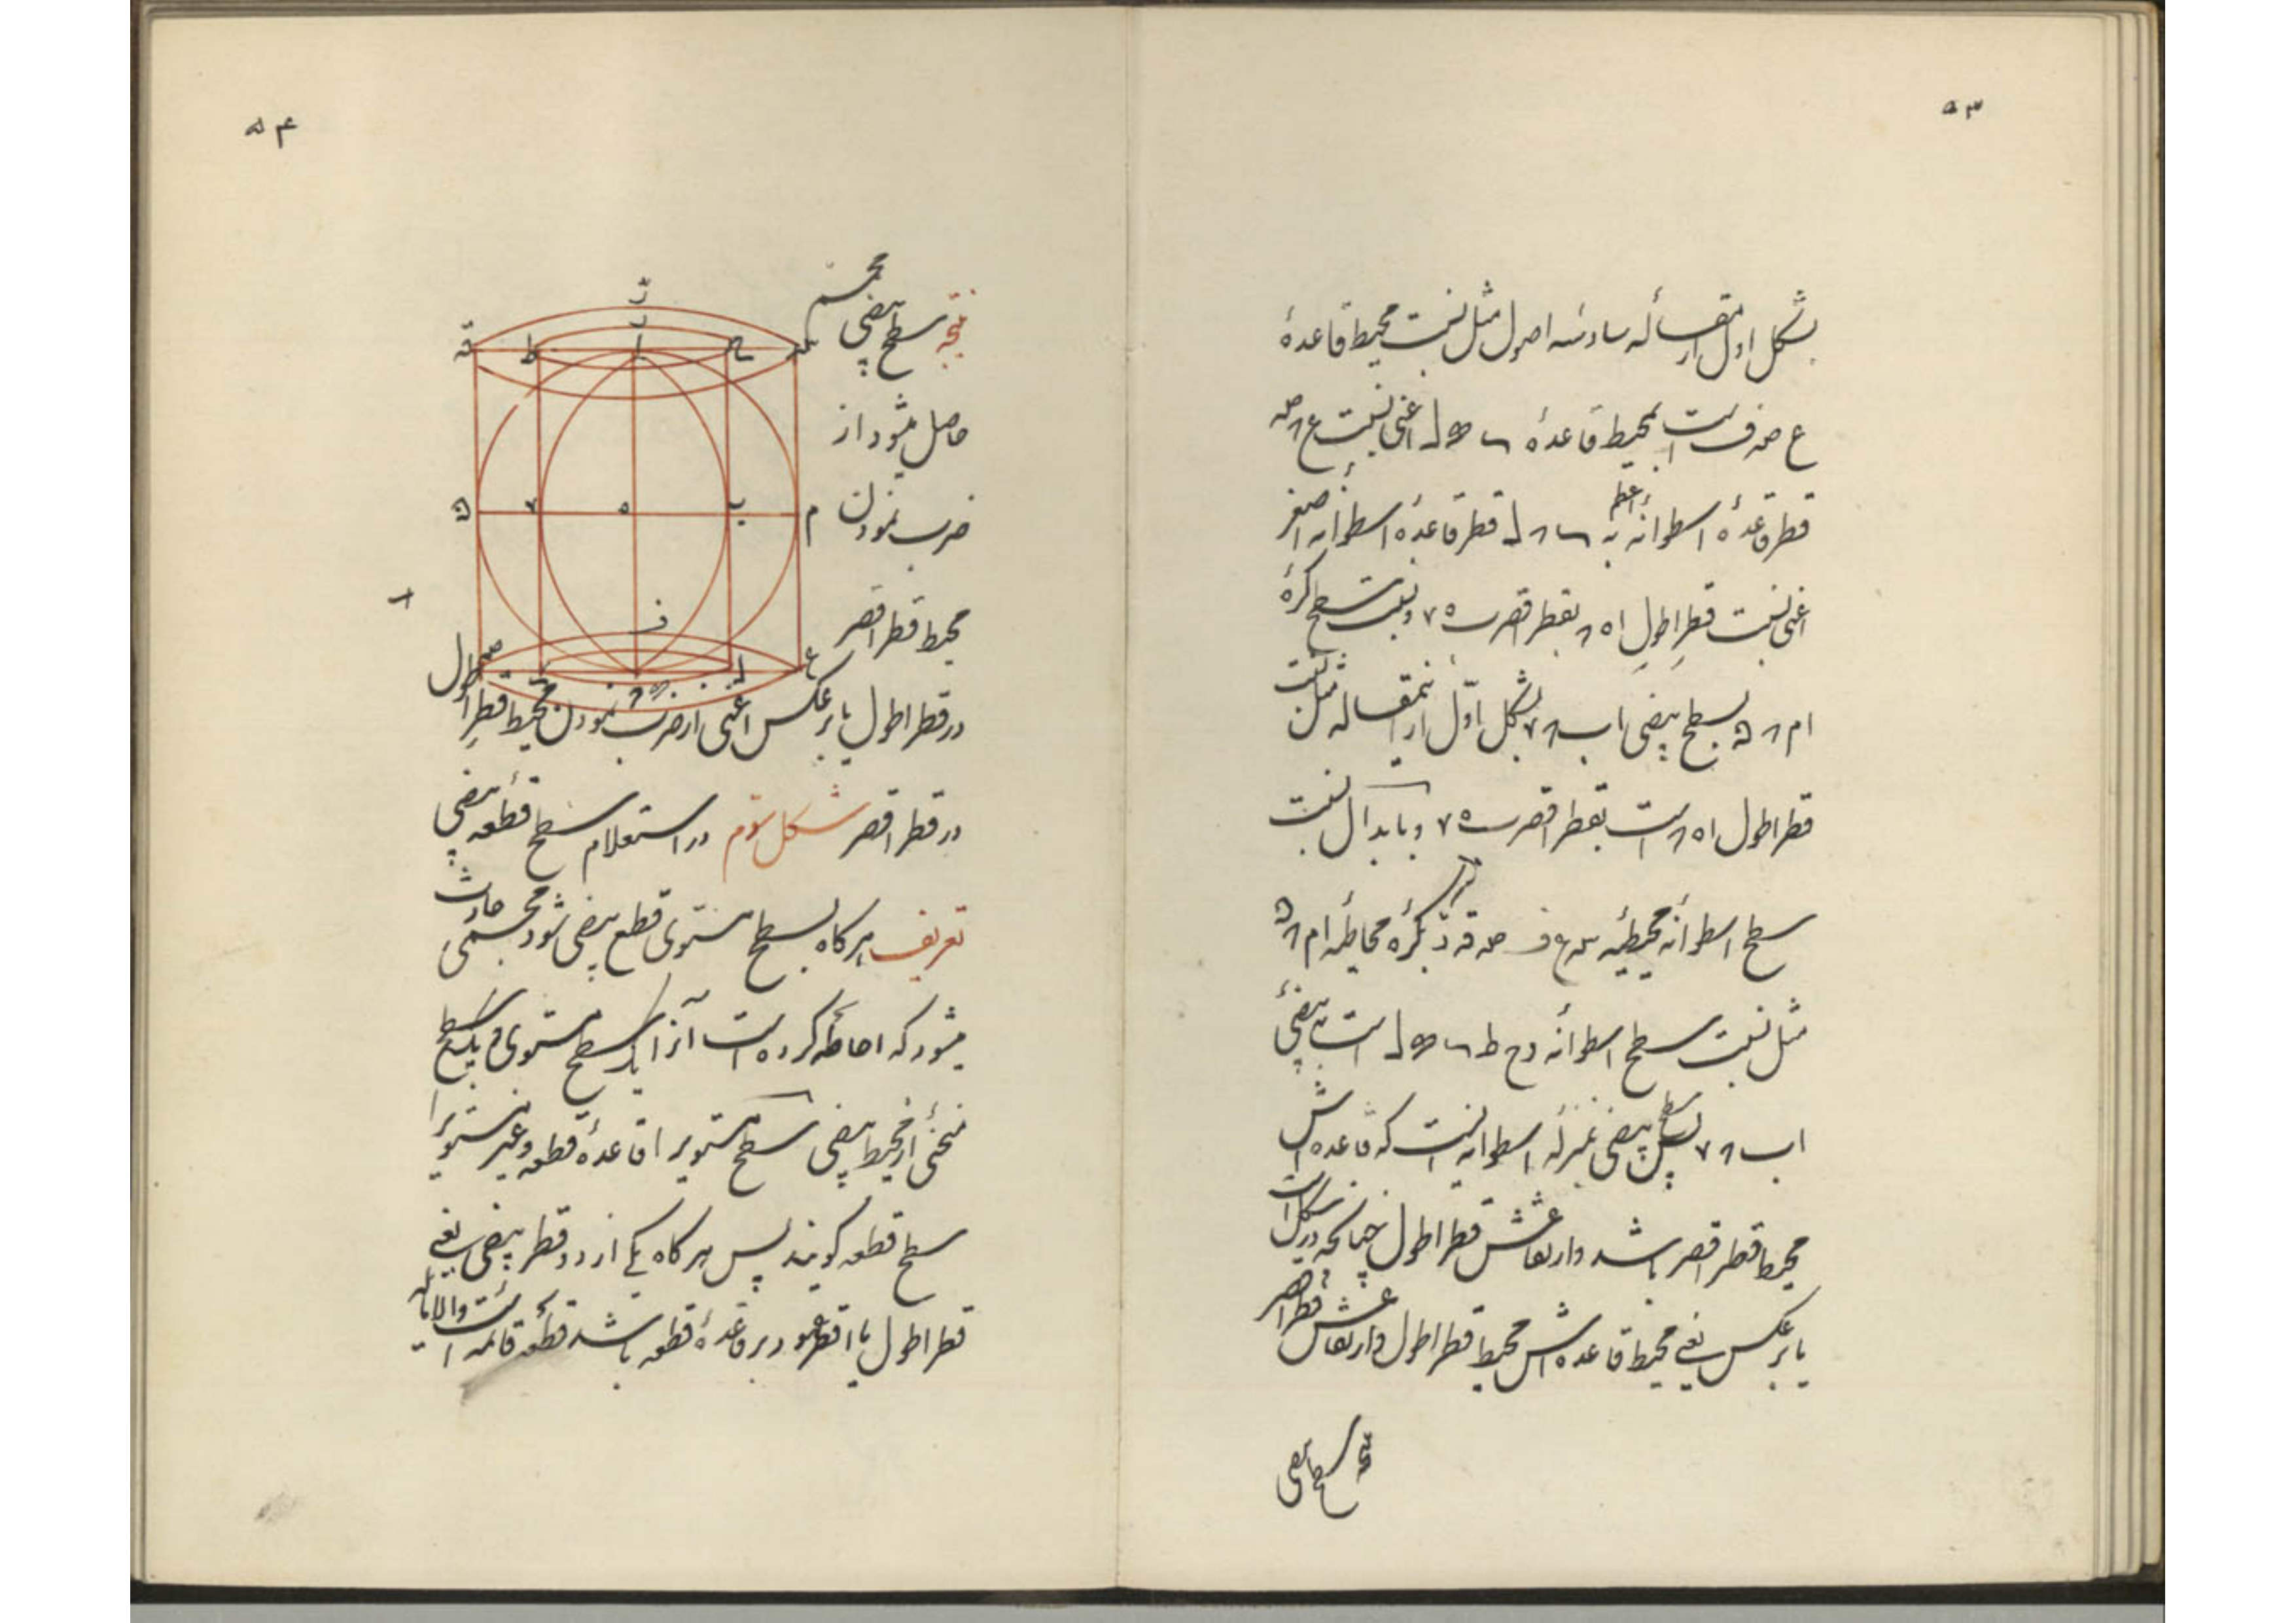 ۵۳
بشکل اول از مقاله سادسه اصول مثل نسبت محیط قاعدهٔ
ع صه ف است بمحیط قاعدهٔ اعنی نسبت ع صه
قطر قاعدهٔ اسطوانه اعظم به قطر قاعدهٔ اسطوانه اصغر
اعنی نسبت قطر اطول ا ه بقطر اقصر ب ه ونسبت سطح کرهٔ
ا م بسطح بیضی ا ب بشکل اول از این مقاله مثل نسبت
قطر اطول ا ه است بقطر اقصر ب ه و بابدال نسبت
سطح اسطوانه محیطیه بکره محاطه ا م
مثل نسبت سطح اسطوانه است به بیضی
ا ب پس سطح بیضی بمنزله اسطوانه ایست که قاعده اش
محیط قطر اقصر باشد وارتفاعش قطر اطول چنانکه در این شکل است
یا برعکس یعنی محیط قاعده اش محیط قطر اطول وارتفاعش قطر اقصر
نتیجه سطح بیضی
۵۴
نتیجه سطح بیضی مجسم
حاصل میشود از
ضرب نمودن
محیط قطر اقصر
در قطر اطول یا برعکس اعنی از ضرب نمودن محیط قطر اطول
در قطر اقصر شکل سوم در استعلام سطح قطعه بیضی
تعریف هرکاه بسطح مستوی قطع بیضی شود مجسمی حادث
میشود که احاطه کرده است آنرا یک سطح مستوی و یک سطح
منحنی از محیط بیضی سطح مستوی را قاعدهٔ قطعه وغیر مستوی را
سطح قطعه کویند پس هرکاه یکی از دو قطر بیضی یعنی
قطر اطول یا اقصر عمود بر قاعدهٔ قطعه باشد قطعه قائمه است والا مایله